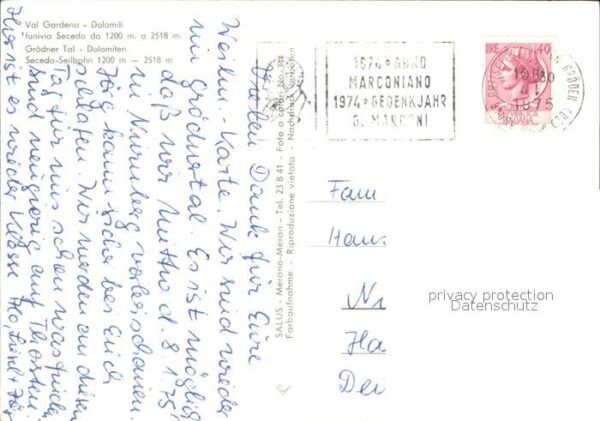 Val Gardena - Dolomiti
funivia Seceda da 1200 m. a 2518 m.
Grödner Tal - Dolomiten
Seceda-Seilbahn 1200 m – 2518 m
Vielen Dank für Eure
Weihn. Karte. Wir sind wieder
im Grödnertal. Es ist möglich
daß wir Mittw. d. 8.1.75
in Nürnberg vorbeischauen.
Jörg kann sicher bei Euch
schlafen. Wir werden an diesem
Tag für uns schon was finden
sind neugierig auf Thorsten
Hier ist es wieder klasse
SALUS - Merano-Meran - Tel. 23 8 41 - Foto a color No.
Farbaufnahme - Riproduzione vietata - Nachdruck verboten
1974 • ANNO
MARCONIANO
1974 • GEDENKJAHR
G. MARCONI
40
1975
Fam
Hans
Nü
Ha
Dei
privacy protection
Datenschutz